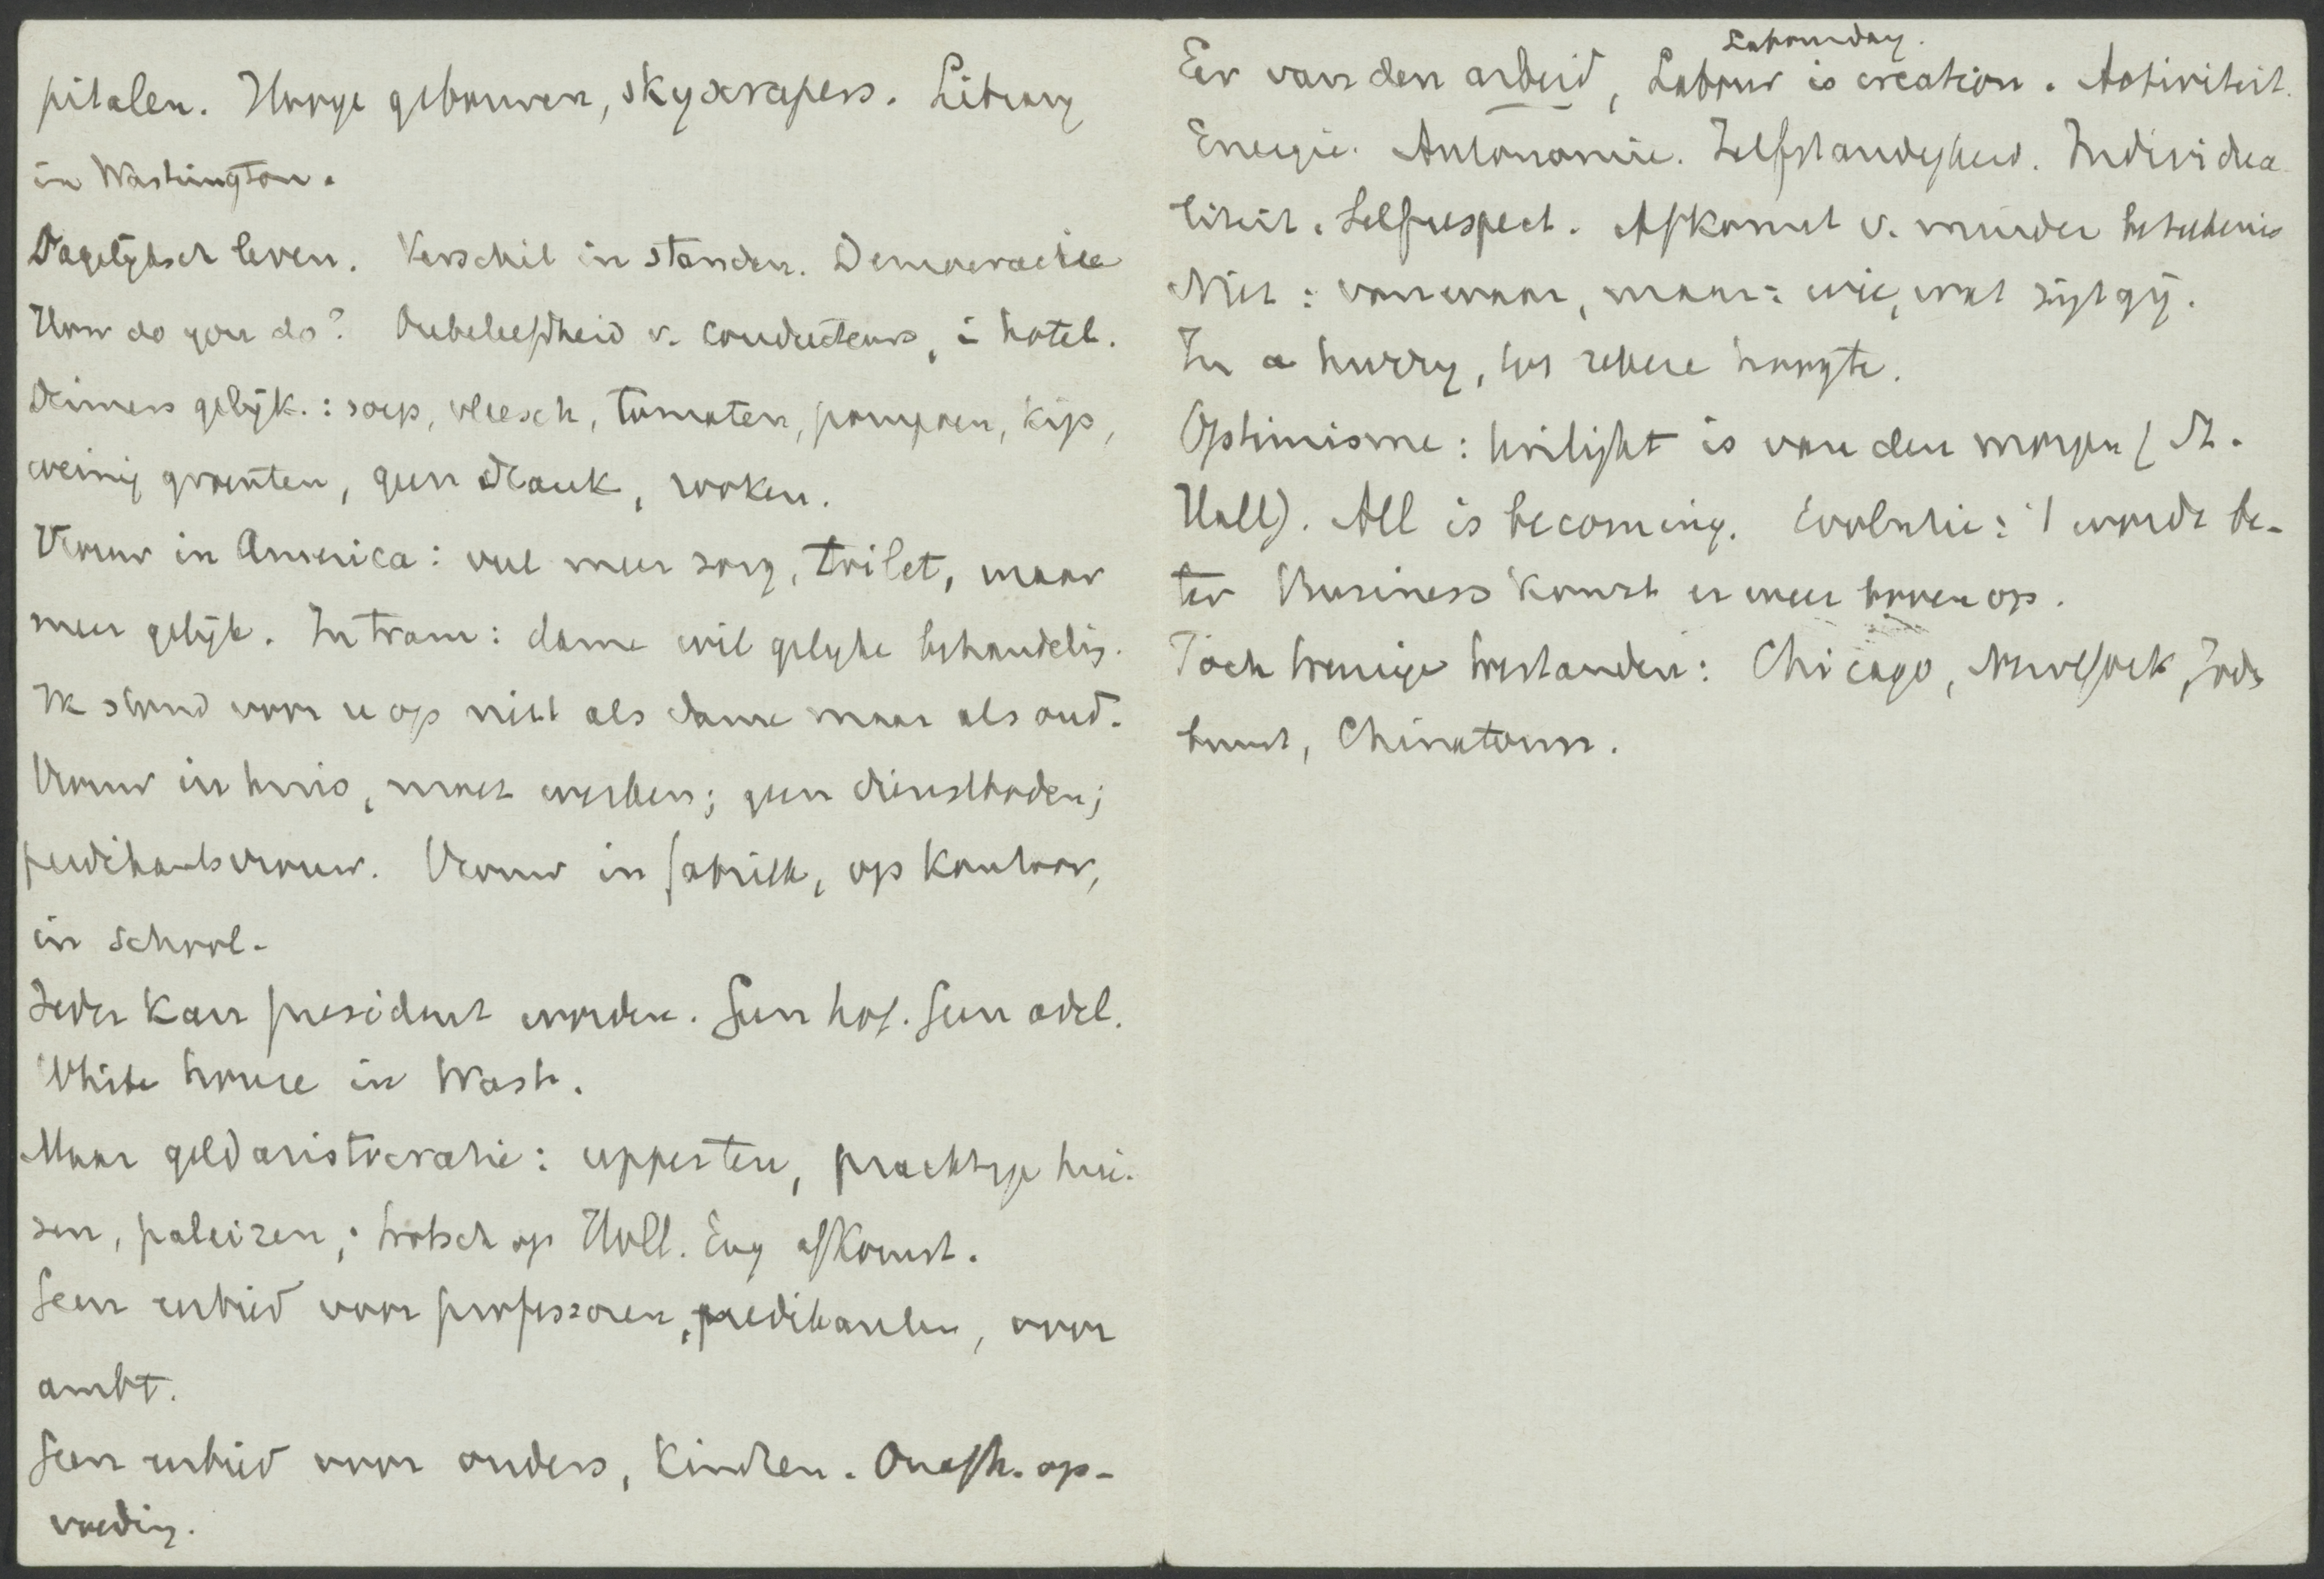 pitalen. Hooge gebouwen, skyscrapers. Library
in Washington.
Dagelijksch leven. Verschil in standen. Democratie
How do you do? Onbeleefdheid v. conducteurs, i hotel.
Diners gelijk.: soep, vleesch, tomaten, pompoen, kip,
weinig groenten, geen drank, rooken.
Vrouw in America: veel meer zorg, toilet, maar
meer gelijk. In tram: dame wil gelijke behandelig.
Ik stond voor u op niet als dame maar als oud.
Vrouw in huis, moet werken; geen dienstboden;
predikantsvrouw. Vrouw in fabriek, op kantoor,
in school.
Ieder kan president worden. Geen hof. Geen adel.
White house in Wash.
Maar geldaristocratie: upperten, prachtige hui-
zen, paleizen; trotsch op Holl. Eng afkomst.
Geen eerbied voor professoren, predikanten, voor
ambt.
Geen eerbied voor ouders, kindren. Onafh. op-
voeding.
Eer van den arbeid, Labour is creation. Activiteit.
Labourday.
Energie. Autonomie. Zelfstandigheid. Individua-
liteit. Selfrespect. Afkomst v. minder beteekenis
Niet: vanwaar, maar: wie, wat zijt gij.
In a hurry, tot zekere hoogte.
Optimisme: twilight is van den morgen (St.
Hall). All is becoming. Evolutie: 't wordt be-
ter Business komt er weer boven op.
Toch treurige toestanden: Chicago, NewYork, Jods
buurt, Chinatown.